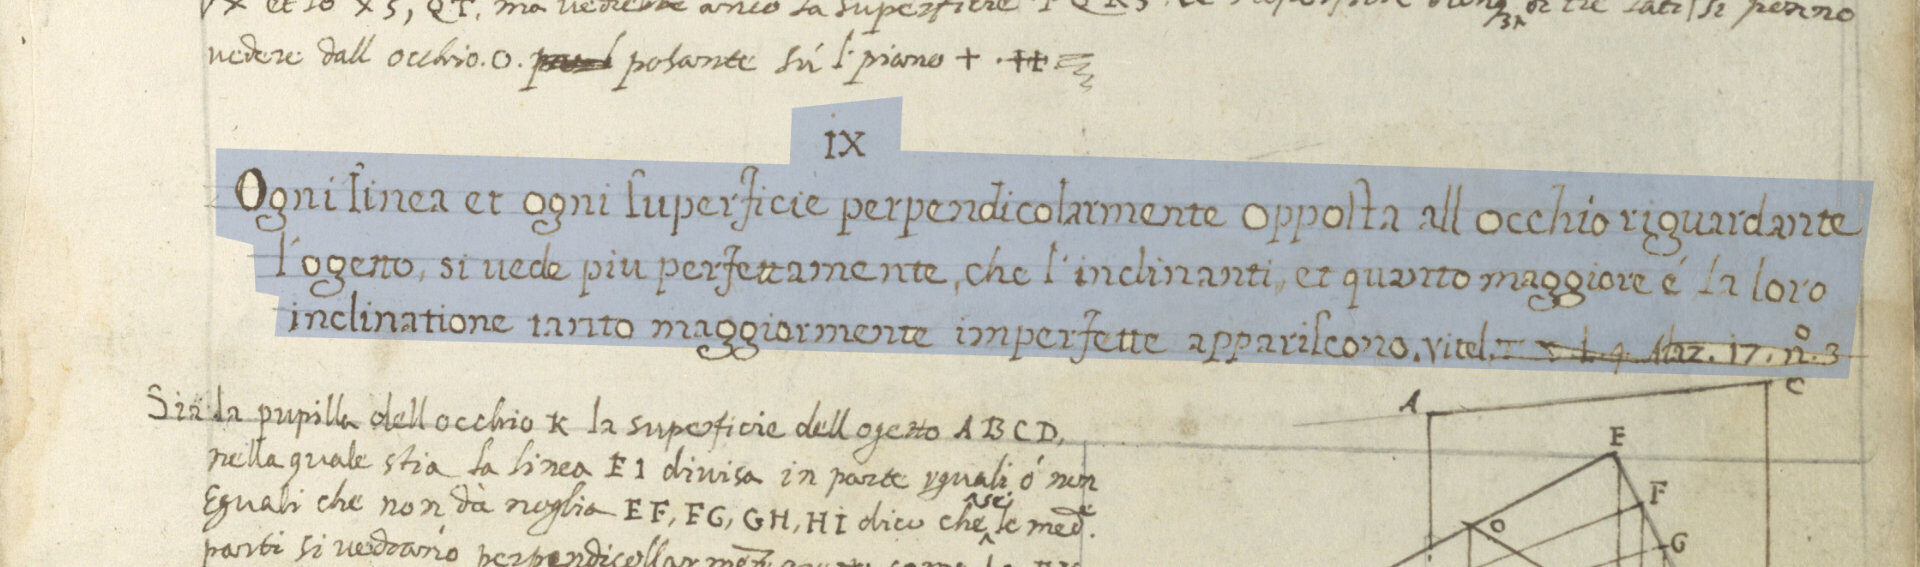 et lo XS, QT, ma vedrebbe anco la superficie PQRS
vedere dall occhio. O. posante sú l' piano +
IX
Ogni linea et ogni superficie perpendicolarmente opposta all occhio riguardante
l'ogetto, si vede piu perfettamente, che l'inclinanti, et quanto maggiore é la loro
inclinatione tanto maggiormente imperfette appariscono. vitel. L. 4. Alaz. 17. nº. 3
Sia la pupilla dell occhio K la superficie dell ogetto ABCD,
nella quale stia la linea EI divisa in parte yguali ó non
Eguali che non dà noglia EF, FG, GH, HI dico che se le med.e
parti si vedrano perpendicollarmente
A
C
E
F
O
G